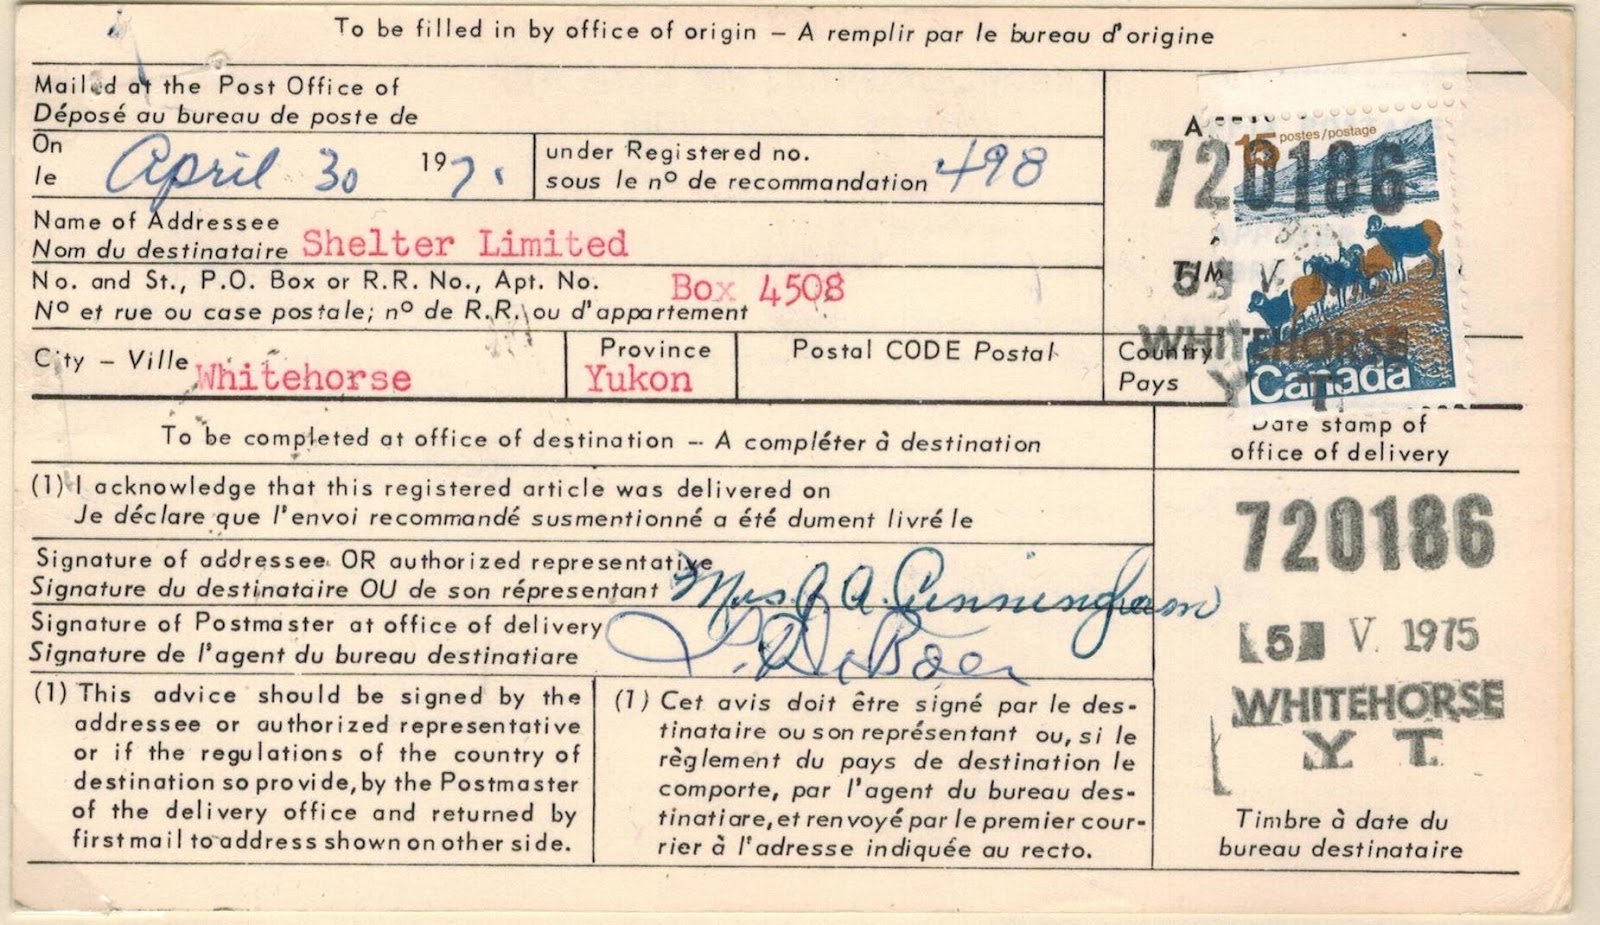 To be filled in by office of origin – A remplir par le bureau d'origine
Mailed at the Post Office of
Déposé au bureau de poste de
On
le
April 30 197
under Registered no.
sous le nº de recommandation 498
Name of Addressee
Nom du destinataire Shelter Limited
No. and St., P.O. Box or R.R. No., Apt. No.
Nº et rue ou case postale; nº de R.R. ou d'appartement
Box 4508
City – Ville Whitehorse
Province
Yukon
Postal CODE Postal
Country
Pays
15 postes/postage
720186
V.
WHITEHORSE
Y T
Canada
To be completed at office of destination -- A compléter à destination
Date stamp of
office of delivery
(1) I acknowledge that this registered article was delivered on
Je déclare que l'envoi recommandé susmentionné a été dument livré le
Signature of addressee OR authorized representative
Signature du destinataire OU de son répresentant
Mrs. J. A. Cunningham
Signature of Postmaster at office of delivery
Signature de l'agent du bureau destinatiare
De Boer
720186
5 V. 1975
WHITEHORSE
Y T.
Timbre à date du
bureau destinataire
(1) This advice should be signed by the
addressee or authorized representative
or if the regulations of the country of
destination so provide, by the Postmaster
of the delivery office and returned by
first mail to address shown on other side.
(1) Cet avis doit être signé par le des-
tinataire ou son représentant ou, si le
règlement du pays de destination le
comporte, par l'agent du bureau des-
tinatiare, et renvoyé par le premier cour-
rier à l'adresse indiquée au recto.